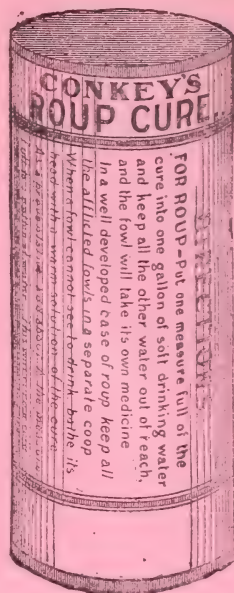 CONKEY'S
ROUP CURE..
DIRECTIONS
FOR ROUP-Put one measure full of the
cure into one gallon of soft drinking water
and keep all the other water out of reach,
and the fowl will take its own medicine
In a well developed case of roup keep all
the afflicted fowls in a separate coop
When a fowl cannot see to drink bathe its
head with a warm solution of the cure
As a preventive add